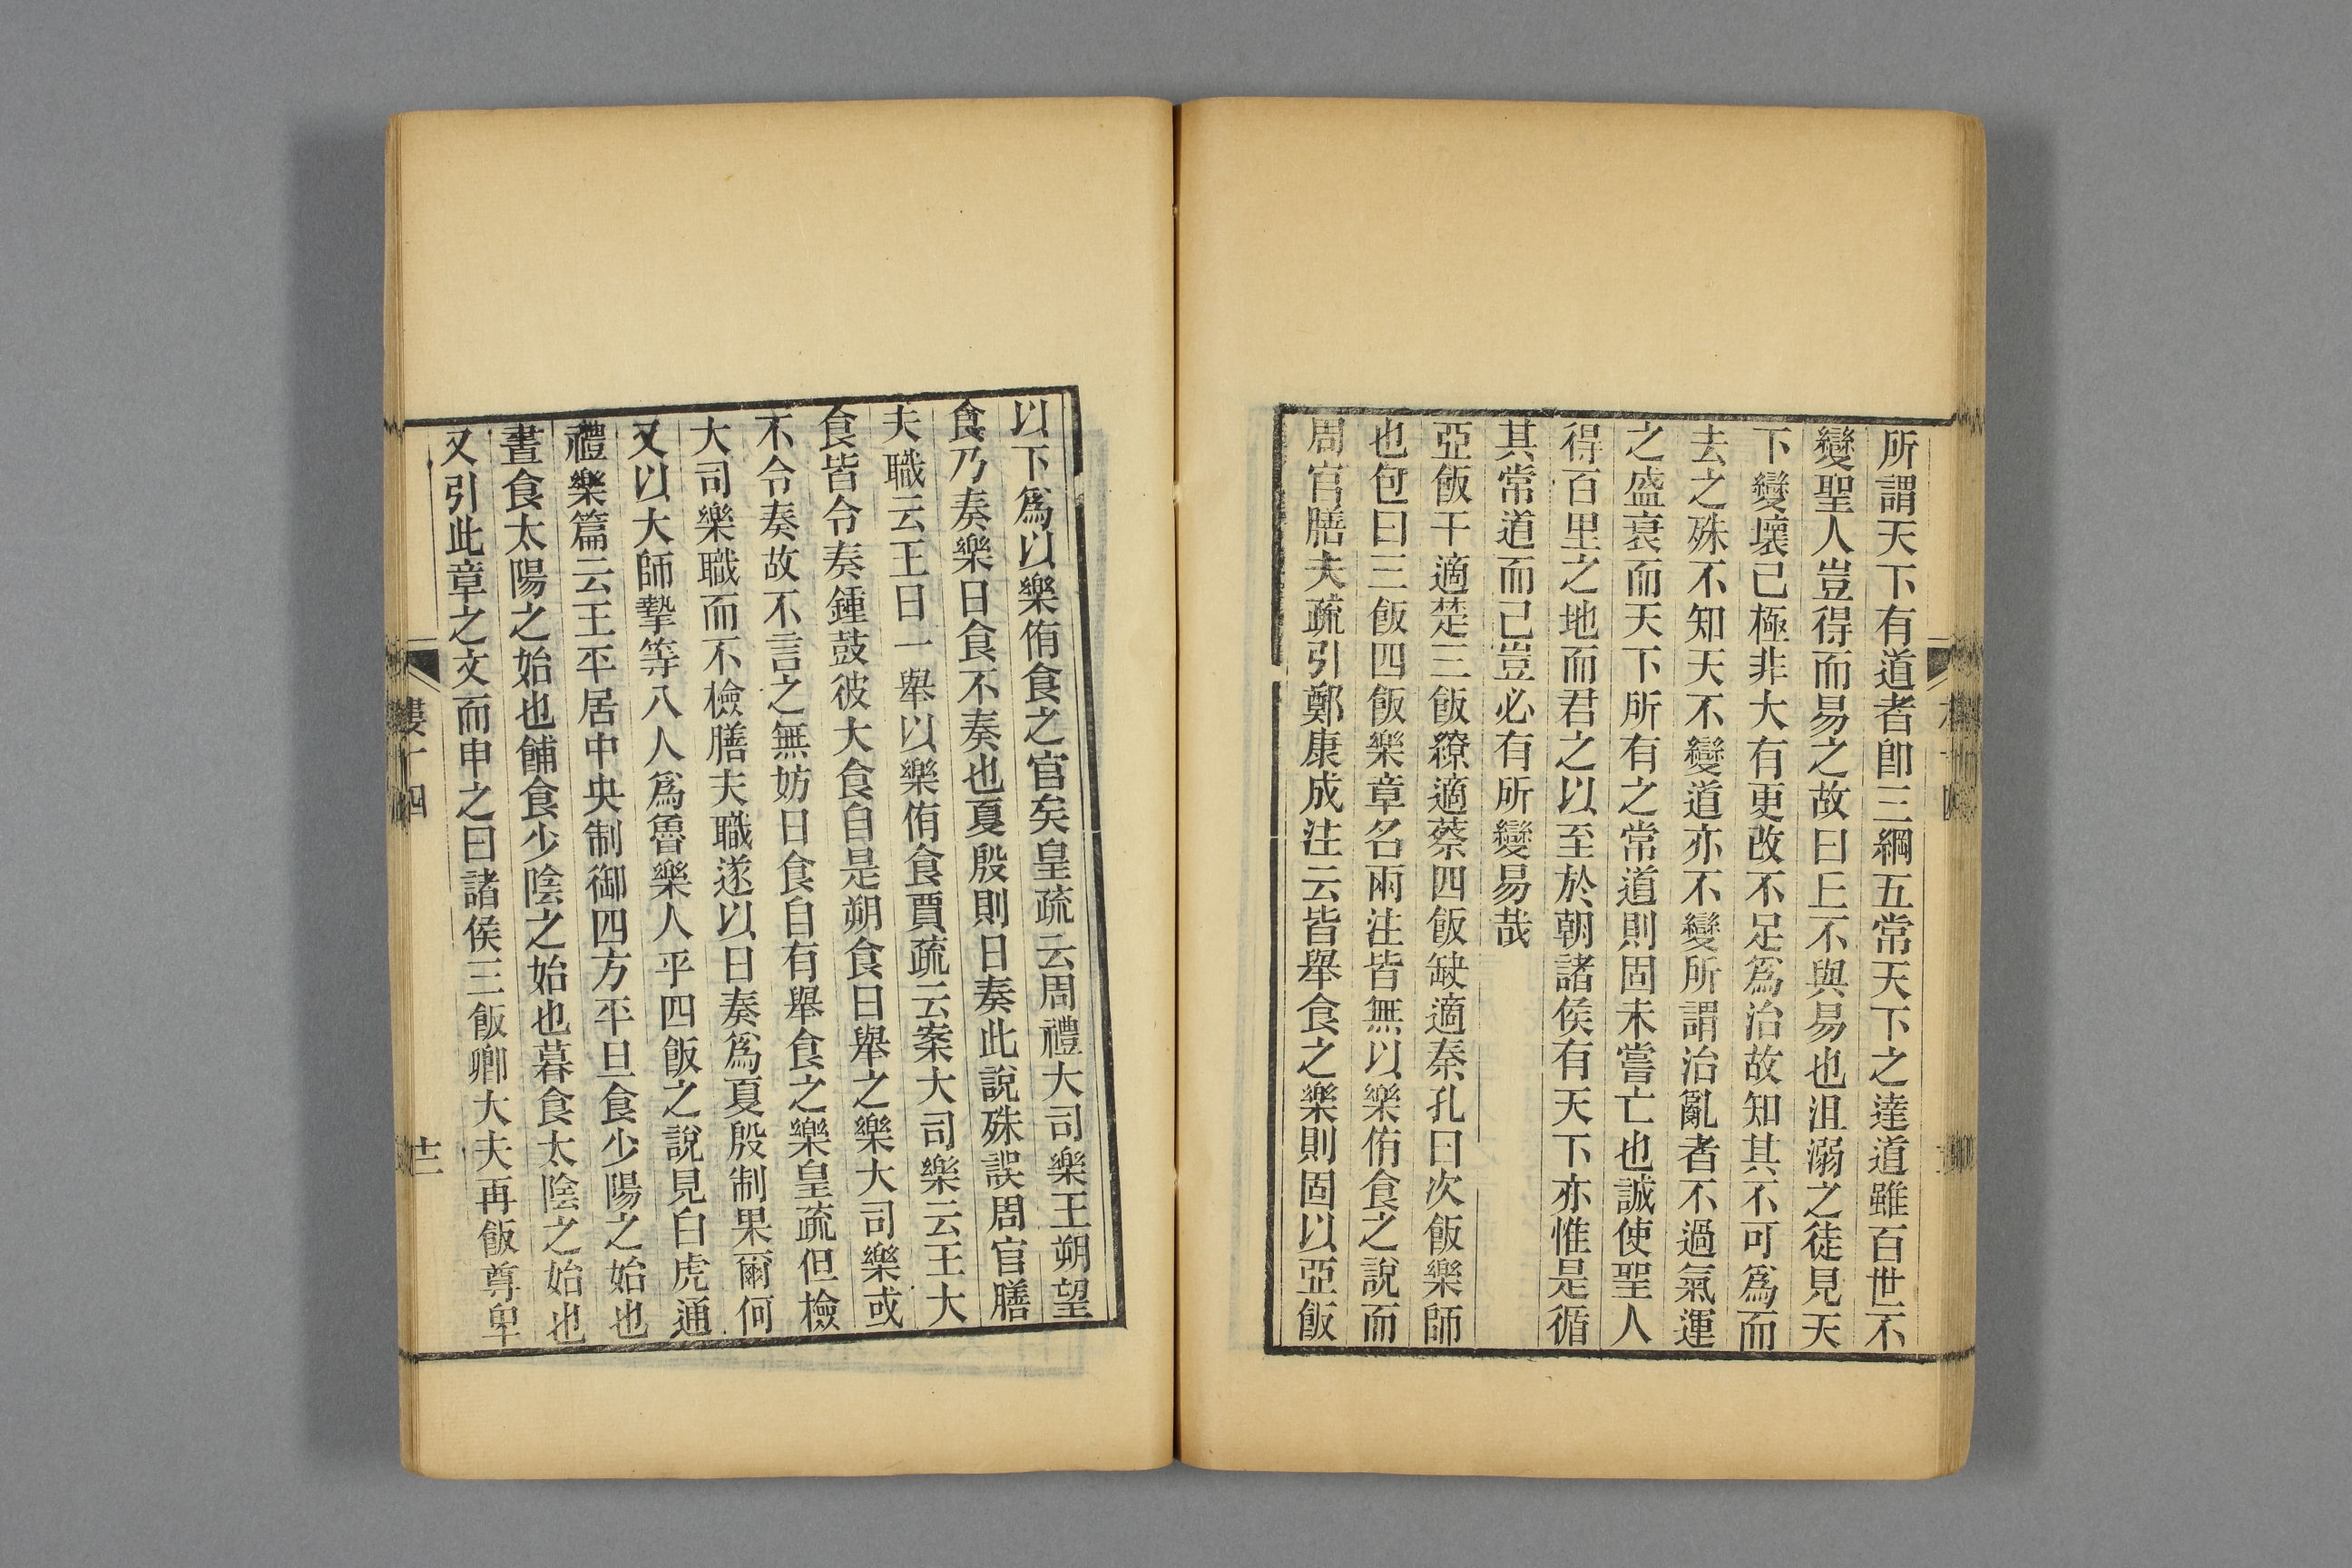 所謂天下有道者卽三綱五常天下之達道雖百世不
變聖人豈得而易之故曰上不與易也沮溺之徒見天
下變壞已極非大有更改不足爲治故知其不可爲而
去之殊不知天不變道亦不變所謂治亂者不過氣運
之盛衰而天下所有之常道則固未嘗亡也誠使聖人
得百里之地而君之以至於朝諸侯有天下亦惟是循
其常道而已豈必有所變易哉
亞飯干適楚三飯繚適蔡四飯缺適秦孔曰次飯樂師
也包曰三飯四飯樂章名兩注皆無以樂侑食之說而
周官膳夫疏引鄭康成注云皆舉食之樂則固以亞飯
以下爲以樂侑食之官矣皇疏云周禮大司樂王朔望
食乃奏樂日食不奏也夏殷則日奏此說殊誤周官膳
夫職云王日一舉以樂侑食賈疏云案大司樂云王大
食皆令奏鍾鼓彼大食自是朔食日舉之樂大司樂或
不令奏故不言之無妨日食自有舉食之樂皇疏但檢
大司樂職而不檢膳夫職遂以日奏爲夏殷制果爾何
又以大師摯等八人爲魯樂人乎四飯之說見白虎通
禮樂篇云王平居中央制御四方平旦食少陽之始也
晝食太陽之始也餔食少陰之始也暮食太陰之始也
又引此章之文而申之曰諸侯三飯卿大夫再飯尊卑
婁十四
十二